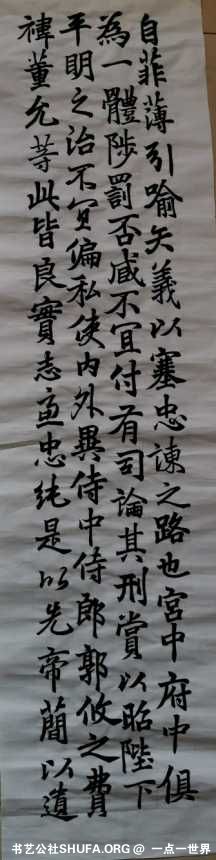 自菲薄引喻失義以塞忠諫之路也宮中府中俱
為一體陟罰否臧不宜付有司論其刑賞以昭陛下
平明之治不宜偏私使內外異侍中侍郎郭攸之費
禕董允等此皆良實志慮忠純是以先帝簡以遺
书艺公社SHUFA.ORG @ 一点一世界